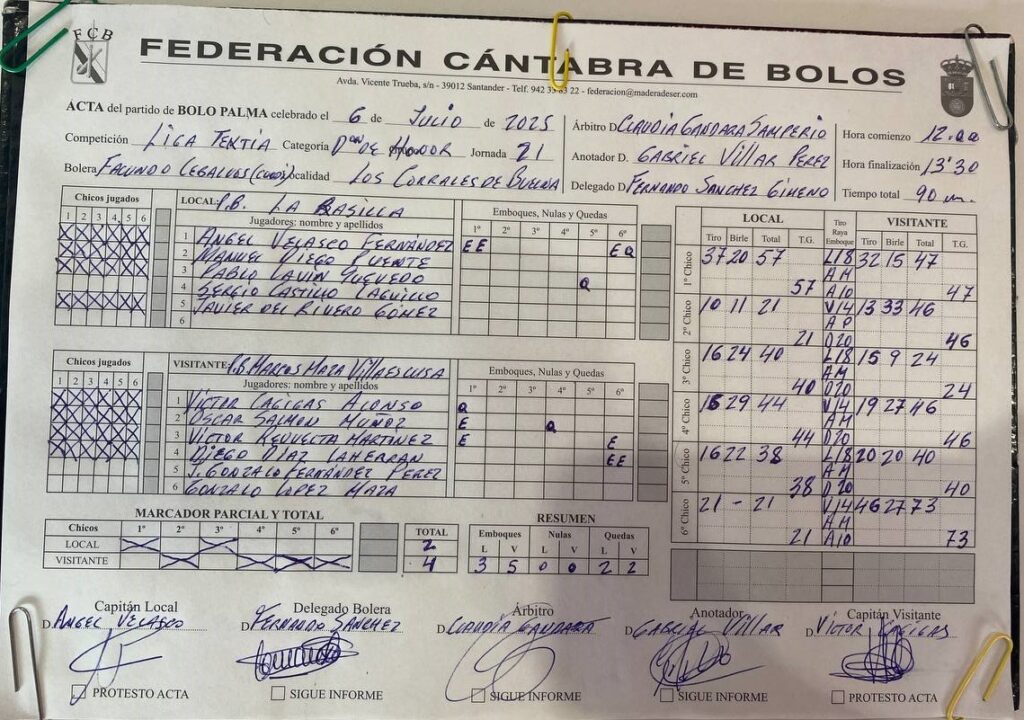 FCB
FEDERACIÓN CÁNTABRA DE BOLOS
Avda. Vicente Trueba, s/n - 39012 Santander - Telf. 942 33 22 - federacion@maderadeser.com
ACTA del partido de BOLO PALMA celebrado el 6 de Julio de 2025
Competición LIGA TENTIA Categoría Don DE HONOR Jornada 21
Bolera FACUNDO CEBALLOS Localidad LOS CORRALES DE BUELNA
Árbitro D. CLAUDIA GANDARA SAMPERIO
Anotador D. GABRIEL VILLAR PEREZ
Delegado D. FERNANDO SANCHEZ GIMENO
Hora comienzo 12.00
Hora finalización 13'30
Tiempo total 90 m.
Chicos jugados
1 2 3 4 5 6
LOCAL: P.B. LA RASILLA
Jugadores: nombre y apellidos
1 ANGEL VELASCO FERNÁNDEZ
2 MANUEL DIEGO PUENTE
3 PABLO LAVIN QUEVEDO
4 SERGIO CASTILLO CAGUILLO
5 JAVIER DEL RIVERO GÓMEZ
6
Emboques, Nulas y Quedas
1º 2º 3º 4º 5º 6º
EE E Q
Q
Chicos jugados
1 2 3 4 5 6
VISITANTE: P.B. MARCOS MAZA VILLAESCUSA
Jugadores: nombre y apellidos
1 VÍCTOR CAGIGAS ALONSO
2 OSCAR SALMON MUÑOZ
3 VICTOR REVUELTA MARTINEZ
4 DIEGO DIAZ LAHERRAN
5 J. GONZALO FERNÁNDEZ PEREZ
6 GONZALO LOPEZ MAZA
Emboques, Nulas y Quedas
1º 2º 3º 4º 5º 6º
Q
E Q
E E
EE
LOCAL Tiro Raya Emboque VISITANTE
Tiro Birle Total T.G. Tiro Birle Total T.G.
1º Chico 37 20 57 L18 32 15 47
AM
57 A10 47
2º Chico 10 11 21 V14 13 33 46
AP
21 D20 46
3º Chico 16 24 40 L18 15 9 24
AM
40 D20 24
4º Chico 15 29 44 V14 19 27 46
AM
44 D20 46
5º Chico 16 22 38 L18 20 20 40
AM
38 D20 40
6º Chico 21 - 21 V14 46 27 73
AM
21 A10 73
MARCADOR PARCIAL Y TOTAL
Chicos 1º 2º 3º 4º 5º 6º TOTAL
LOCAL 2
VISITANTE 4
RESUMEN
Emboques Nulas Quedas
L V L V L V
3 5 0 0 2 2
Capitán Local
D. ANGEL VELASCO
Delegado Bolera
D. FERNANDO SANCHEZ
Árbitro
D. CLAUDIA GANDARA
Anotador
D. GABRIEL VILLAR
Capitán Visitante
D. VÍCTOR CAGIGAS
PROTESTO ACTA
SIGUE INFORME
SIGUE INFORME
SIGUE INFORME
PROTESTO ACTA